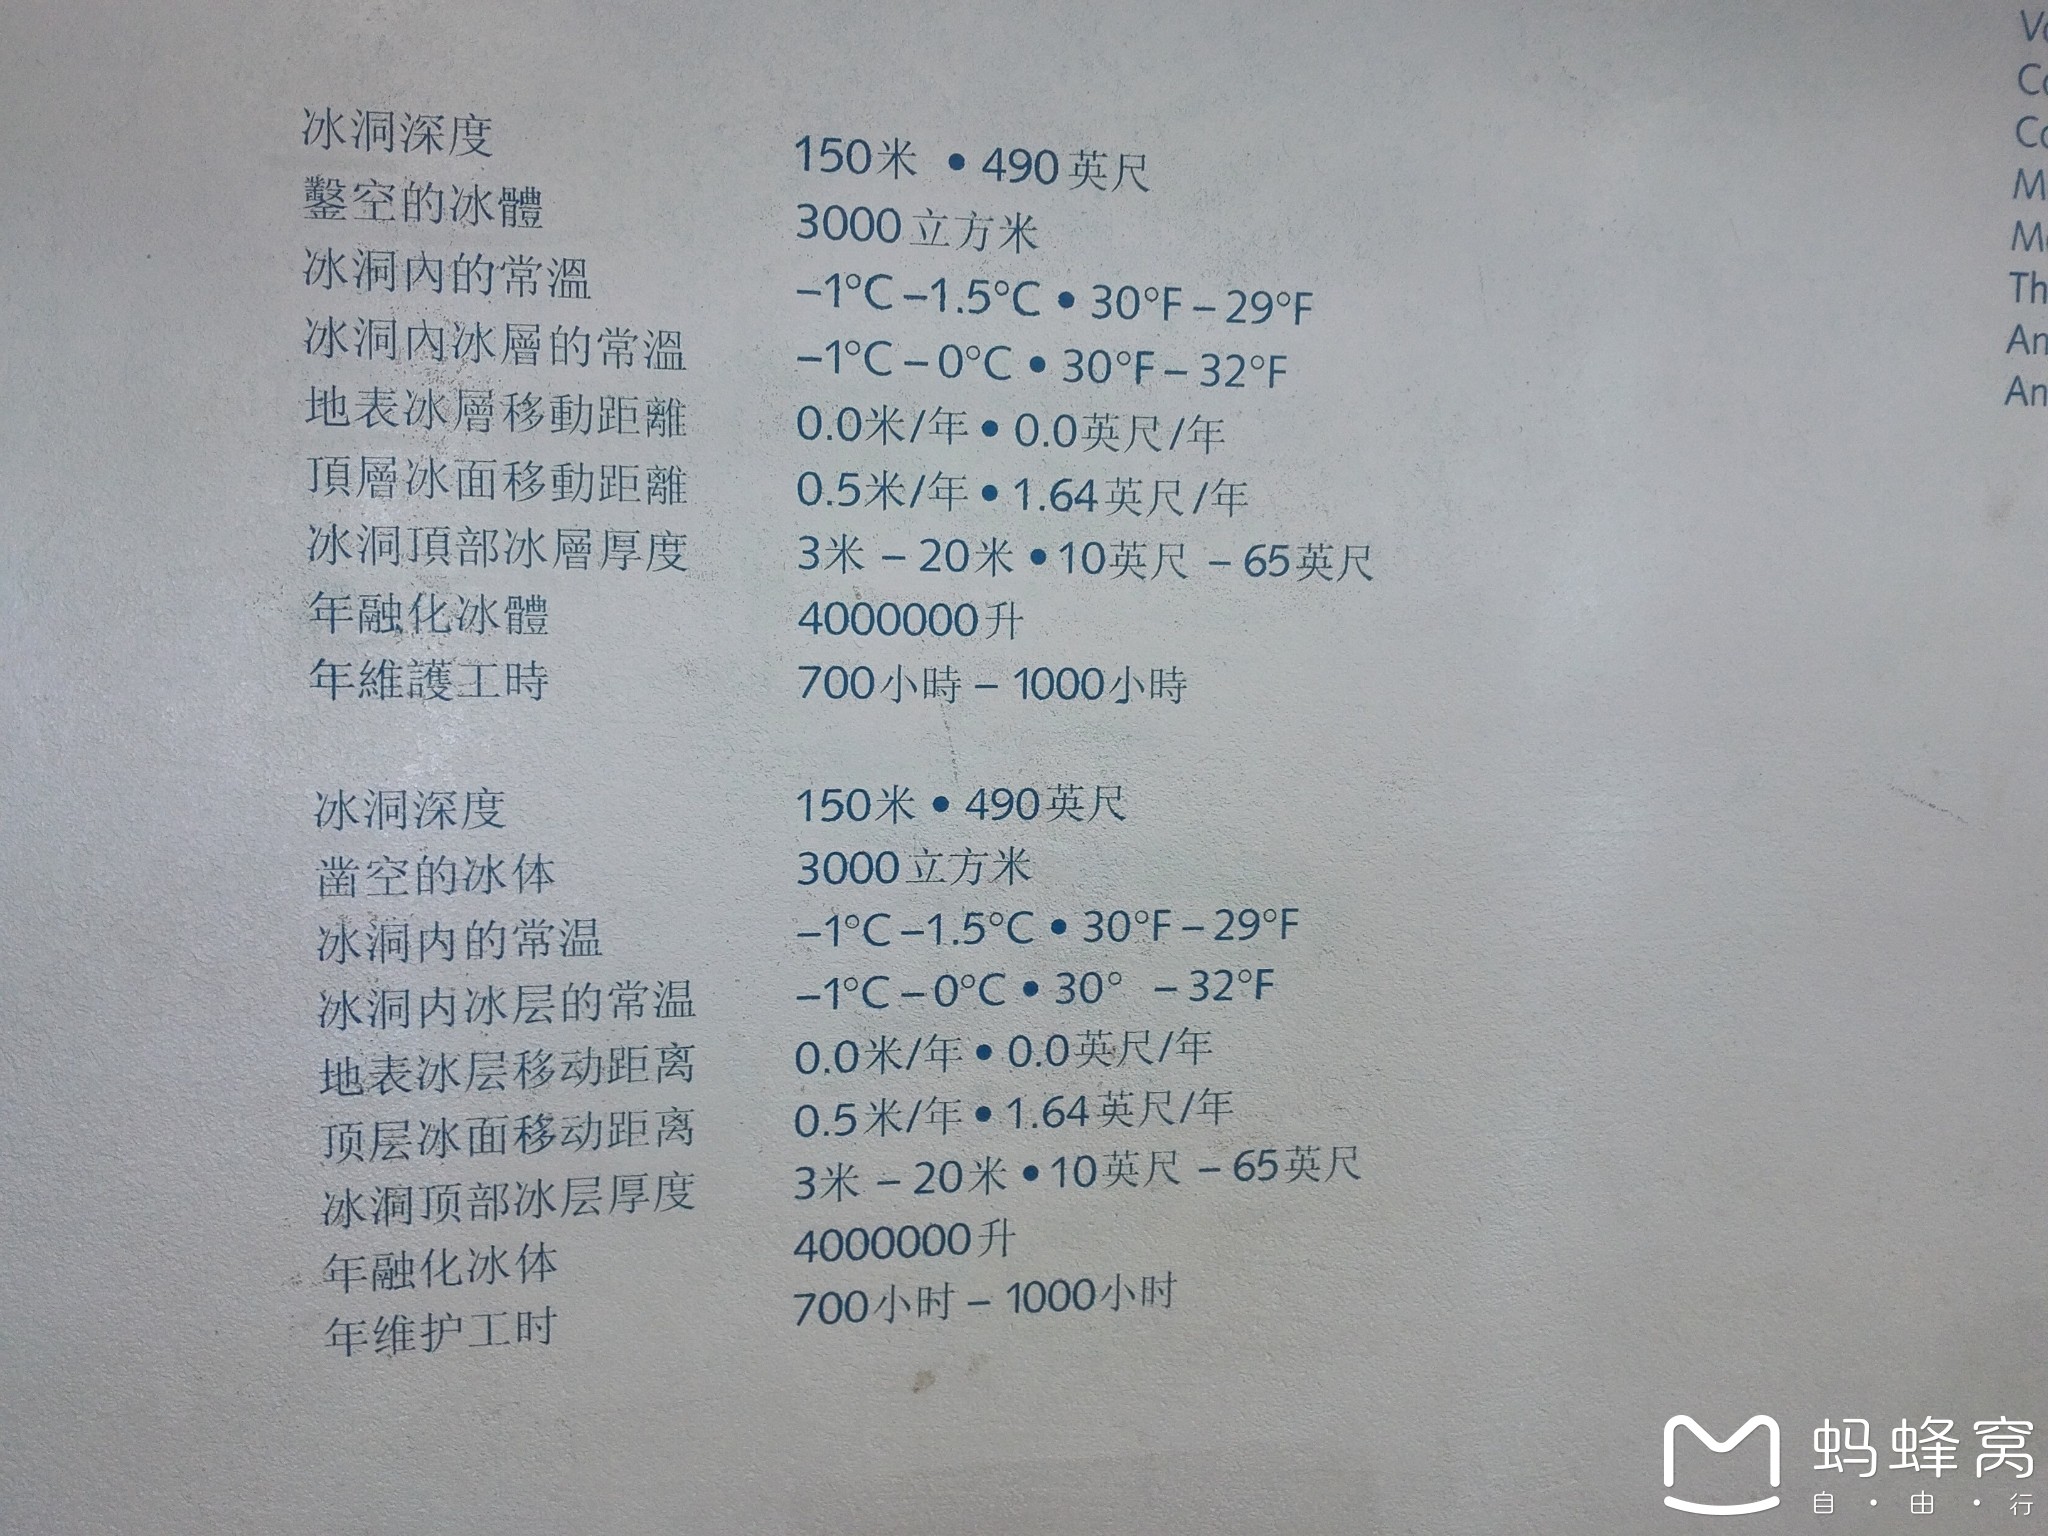 冰洞深度 150米 • 490英尺
鑿空的冰體 3000立方米
冰洞內的常溫 –1°C –1.5°C • 30°F – 29°F
冰洞內冰層的常溫 –1°C – 0°C • 30°F – 32°F
地表冰層移動距離 0.0米/年 • 0.0英尺/年
頂層冰面移動距離 0.5米/年 • 1.64英尺/年
冰洞頂部冰層厚度 3米 – 20米 • 10英尺 – 65英尺
年融化冰體 4000000升
年維護工時 700小時 – 1000小時
冰洞深度 150米 • 490英尺
凿空的冰体 3000立方米
冰洞内的常温 –1°C –1.5°C • 30°F – 29°F
冰洞内冰层的常温 –1°C – 0°C • 30° – 32°F
地表冰层移动距离 0.0米/年 • 0.0英尺/年
顶层冰面移动距离 0.5米/年 • 1.64英尺/年
冰洞顶部冰层厚度 3米 – 20米 • 10英尺 – 65英尺
年融化冰体 4000000升
年维护工时 700小时 – 1000小时
蚂蜂窝
自·由·行